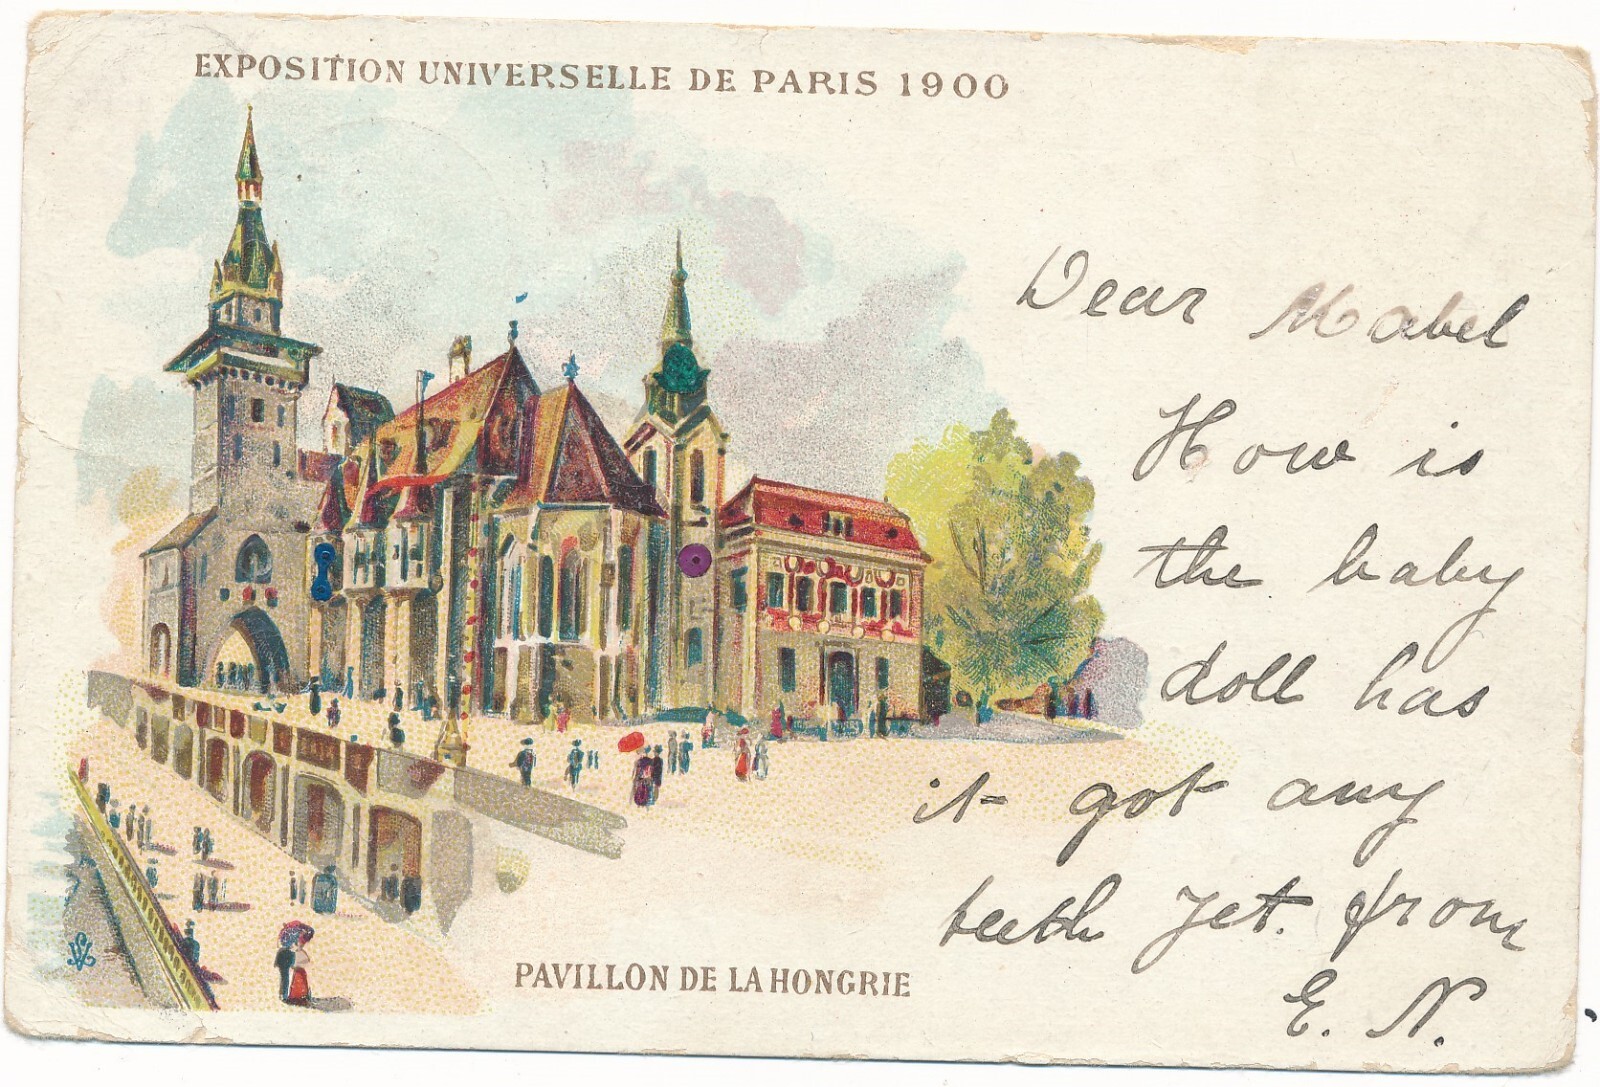 EXPOSITION UNIVERSELLE DE PARIS 1900
Dear Mabel
How is
the baby
doll has
it got any
teeth yet. from
E. N.
PAVILLON DE LA HONGRIE